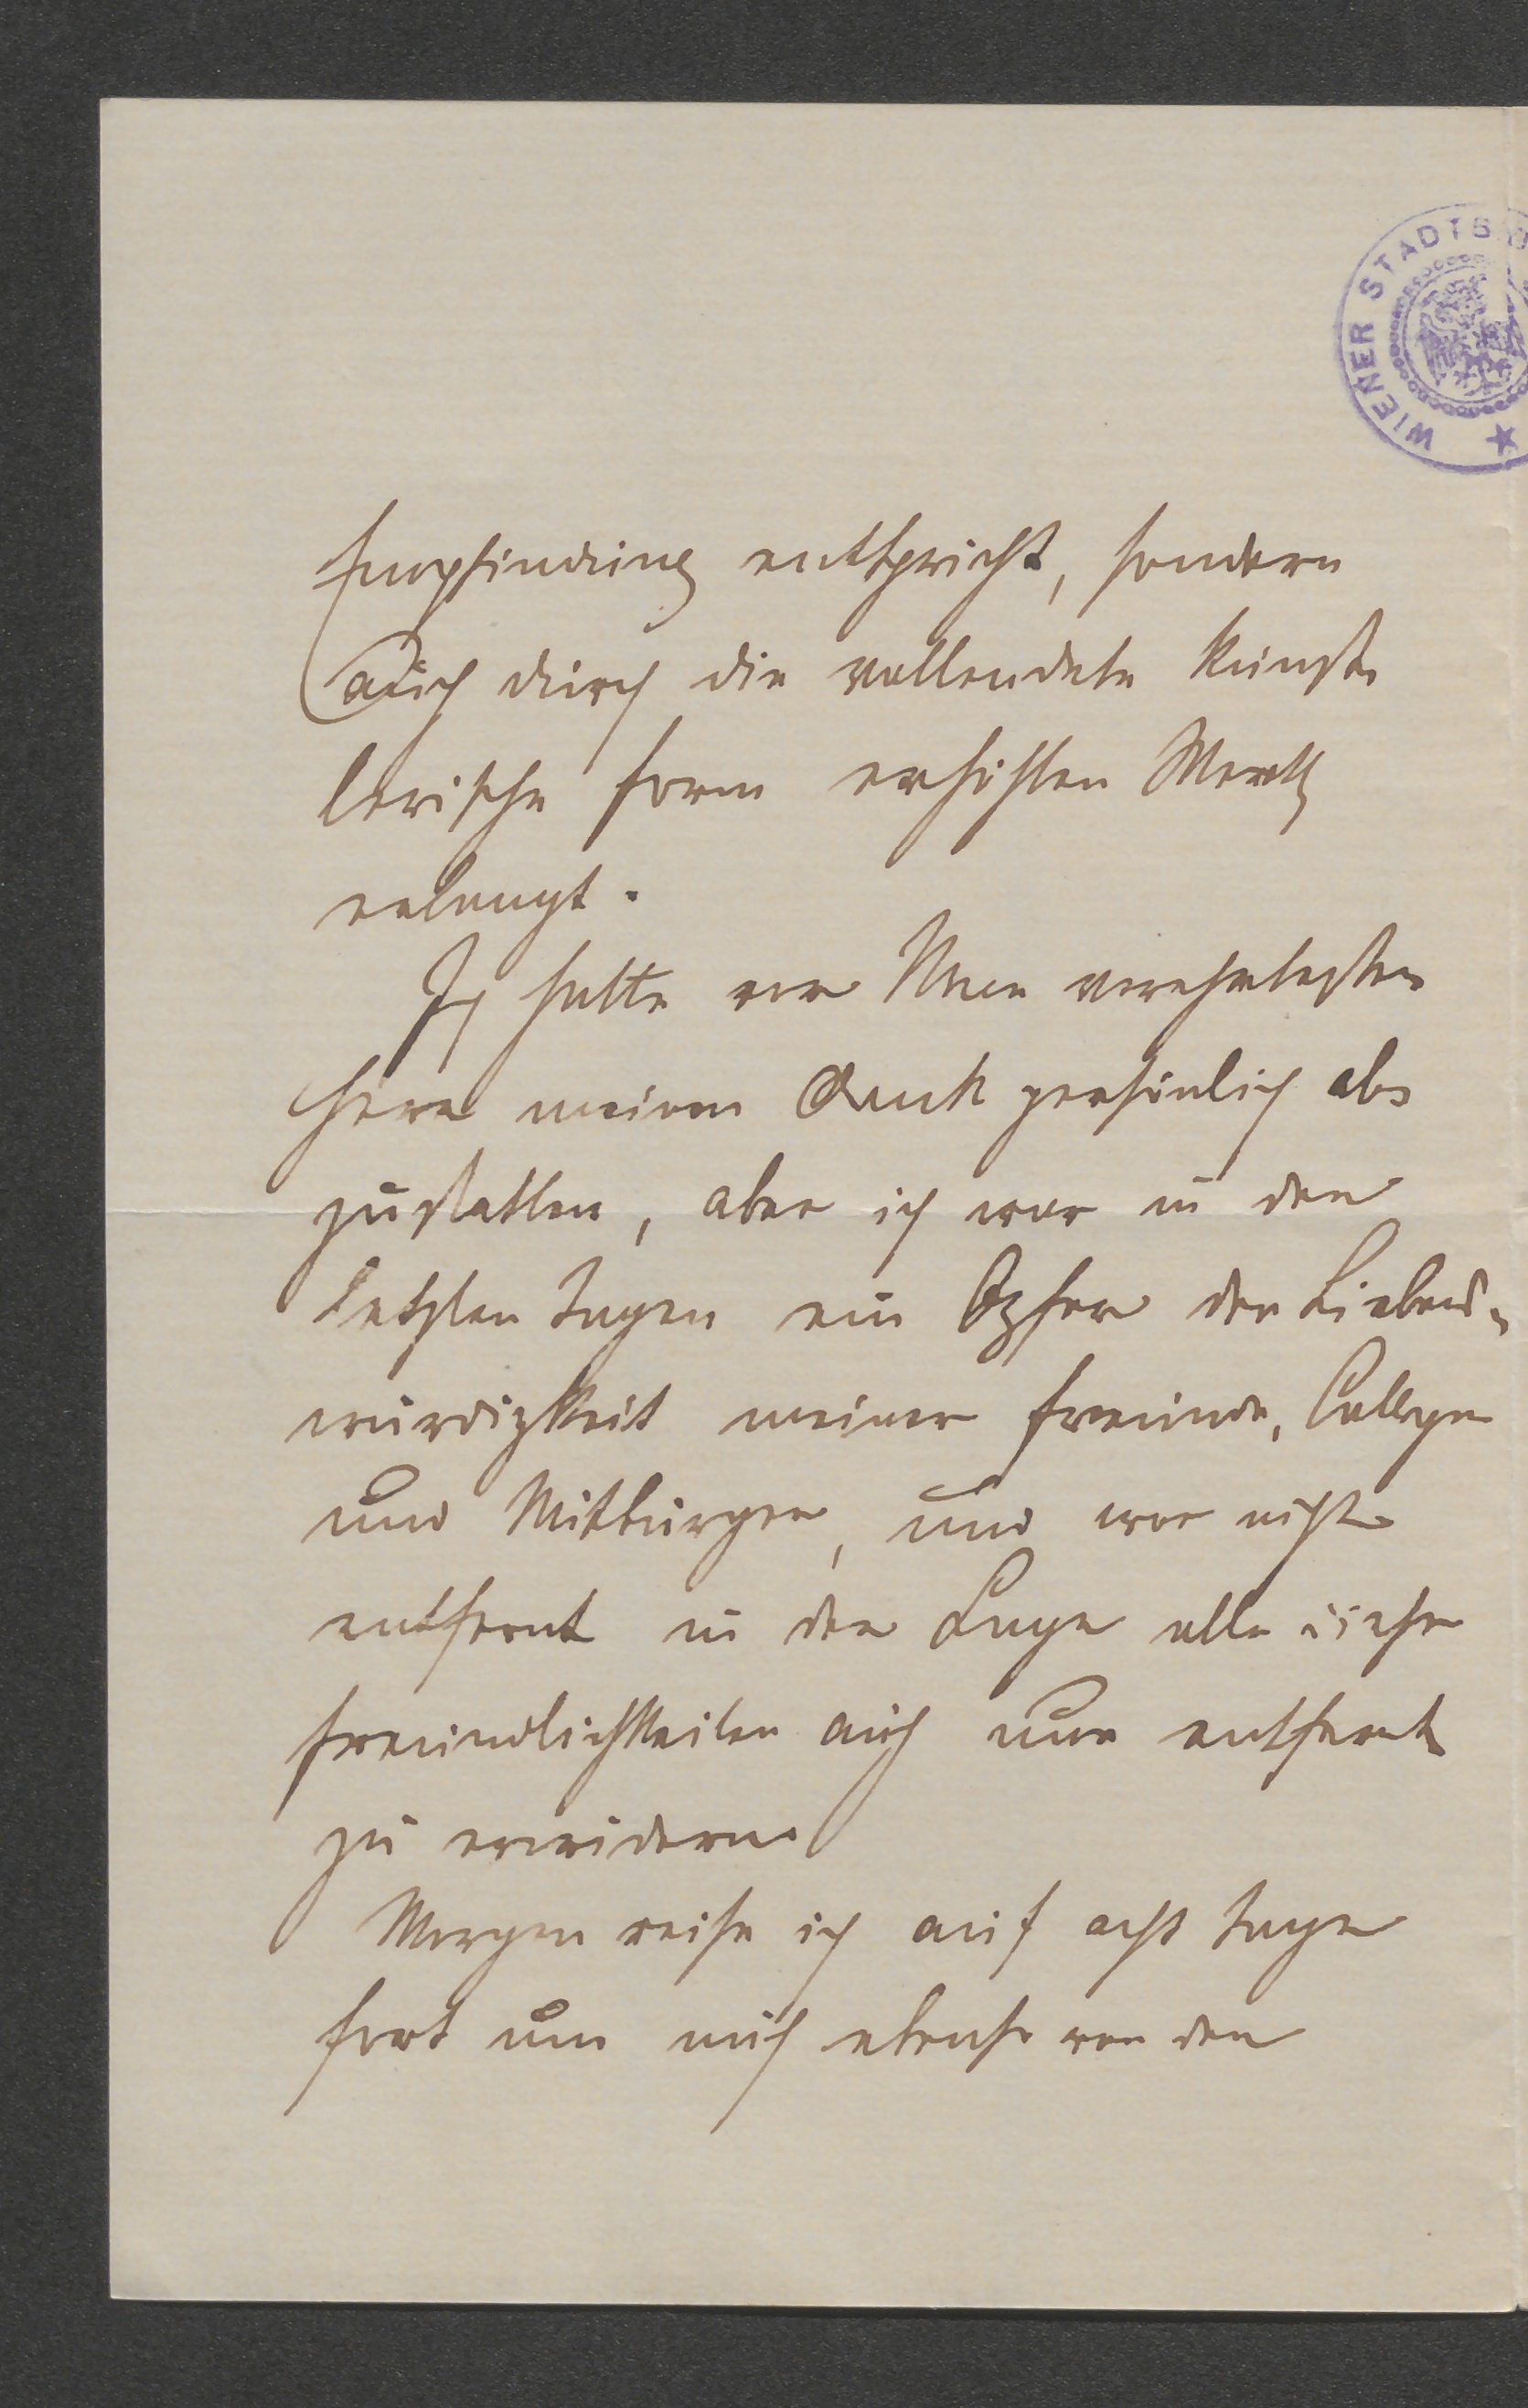 WIENER STADTB
Empfindung entspricht, sondern
auch durch die vollendete künst-
lerische Form erhöhten Werth
erlangt.
Ich hatte vor Ihnen verehrtester
Herr meinen Dank persönlich ab-
zustatten, aber ich war in den
letzten Tagen ein Opfer der Liebens-
würdigkeit meiner Freunde, Collegen
und Mitbürger, und war nicht
entfernt in der Lage alle diese
Freundlichkeiten auch nur entfernt
zu erwidern.
Morgen reise ich auf acht Tage
fort um mich ebenso von den